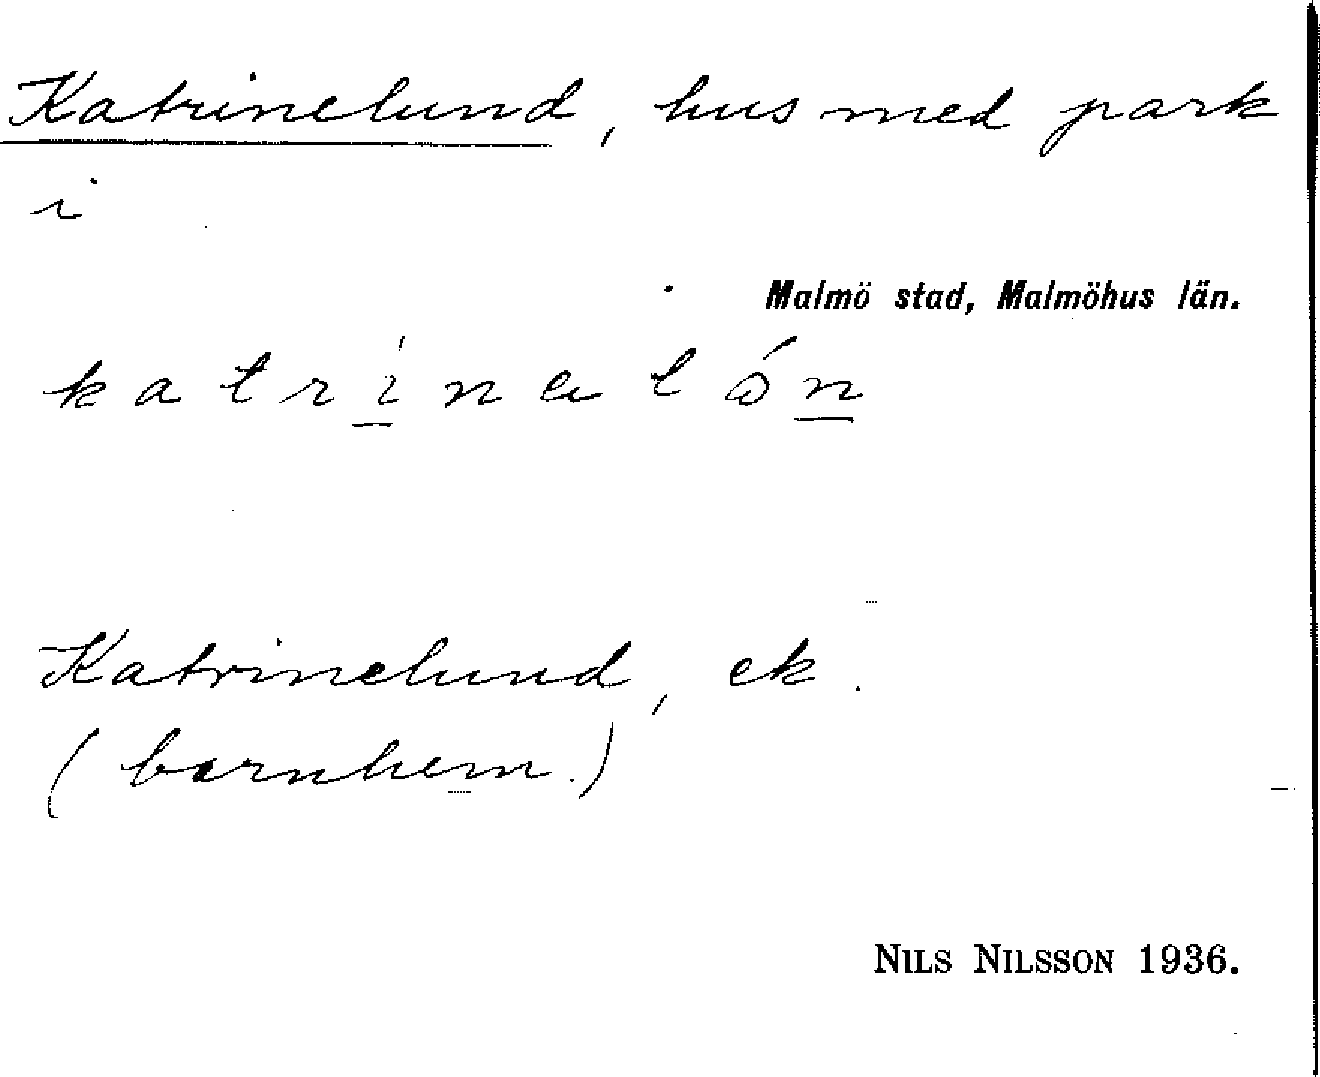 Katrinelund, hus med park
i
Malmö stad, Malmöhus län.
Katrinelund, ek.
(barnhem.)
NILS NILSSON 1936.